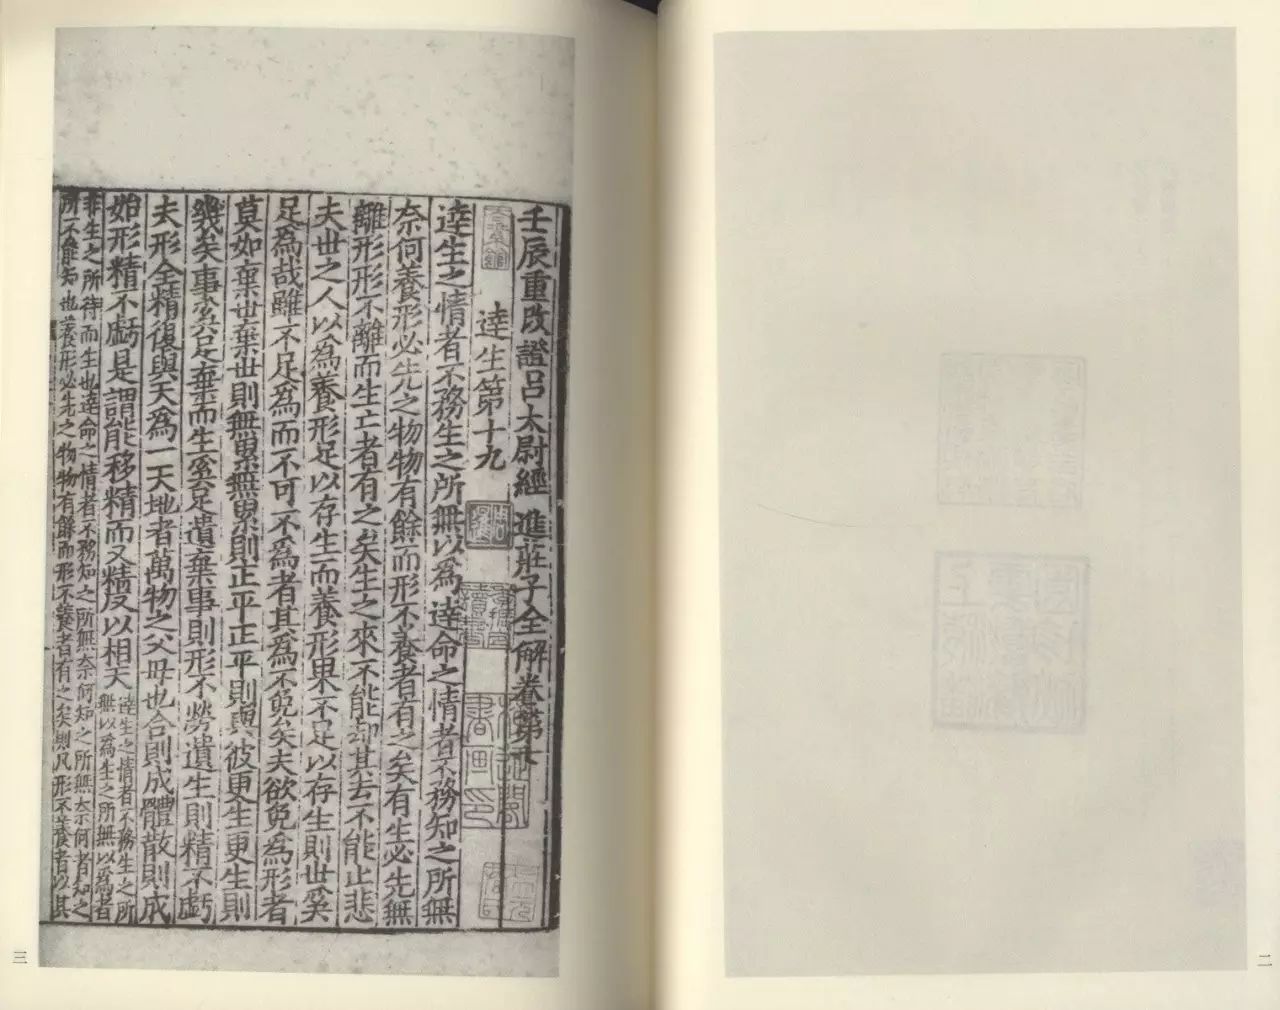 二
壬辰重改證呂太尉經 進莊子全解卷第
達生第十九
達生之情者不務生之所無以為達命之情者不務知之所無
奈何養形必先之物物有餘而形不養者有之矣有生必先無
離形形不離而生亡者有之矣生之來不能却其去不能止悲
夫世之人以為養形足以存生而養形果不足以存生則世奚
足為哉雖不足為而不可不為者其為不免矣夫欲免為形者
莫如棄世棄世則無累無累則正平正平則與彼更生更生則
幾矣事奚足棄而生奚足遺棄事則形不勞遺生則精不虧
夫形全精復與天為一天地者萬物之父母也合則成體散則成
始形精不虧是謂能移精而又精反以相天
達生之情者不務生之所
無以為生之所無以為者
非生之所待而生也達命之情者不務知之所無奈何知之所無奈何者知之
所不能知也養形必先之物物有餘而形不養者有之矣則凡形不養者以其
三